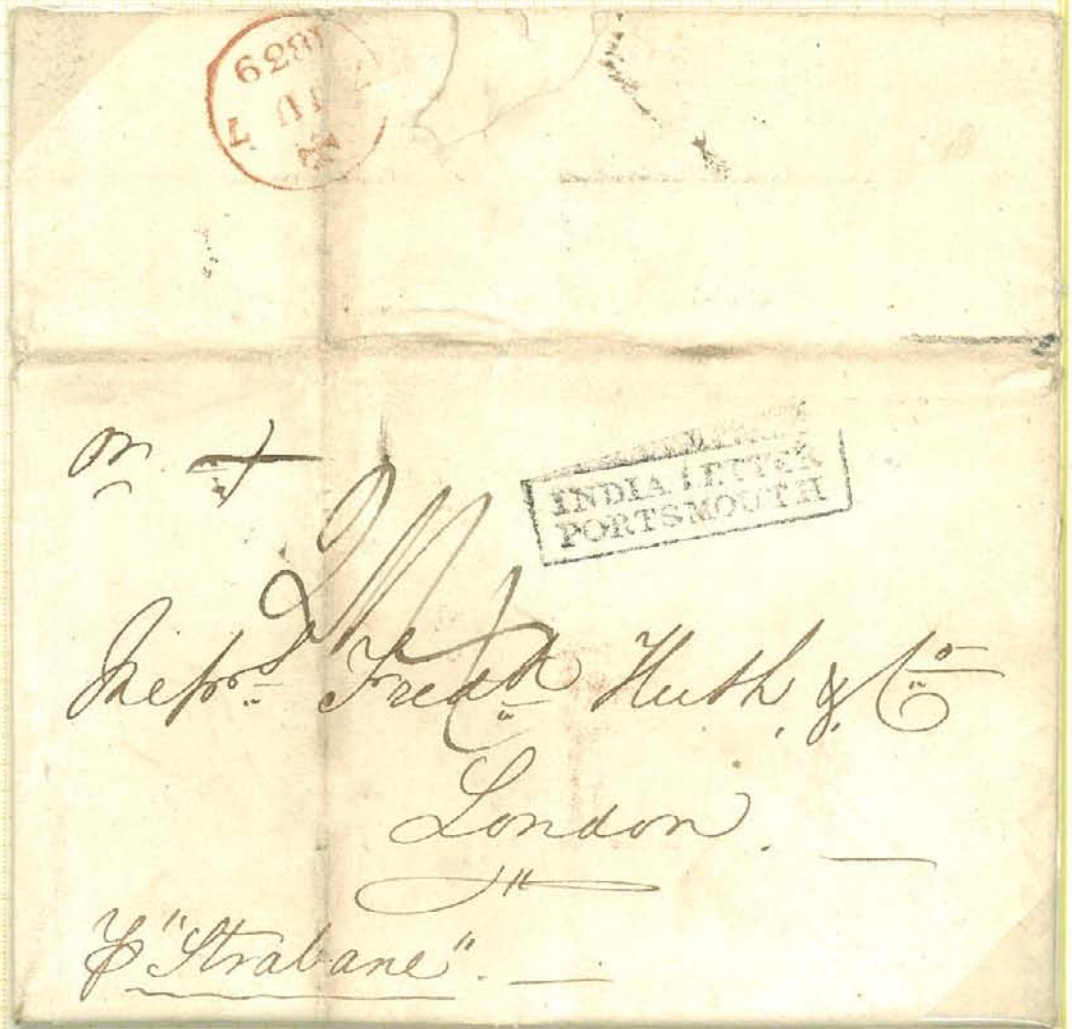 1839
7
INDIA LETTER
PORTSMOUTH
Messrs. Fredk. Huth & Co
London.
p "Strabane".